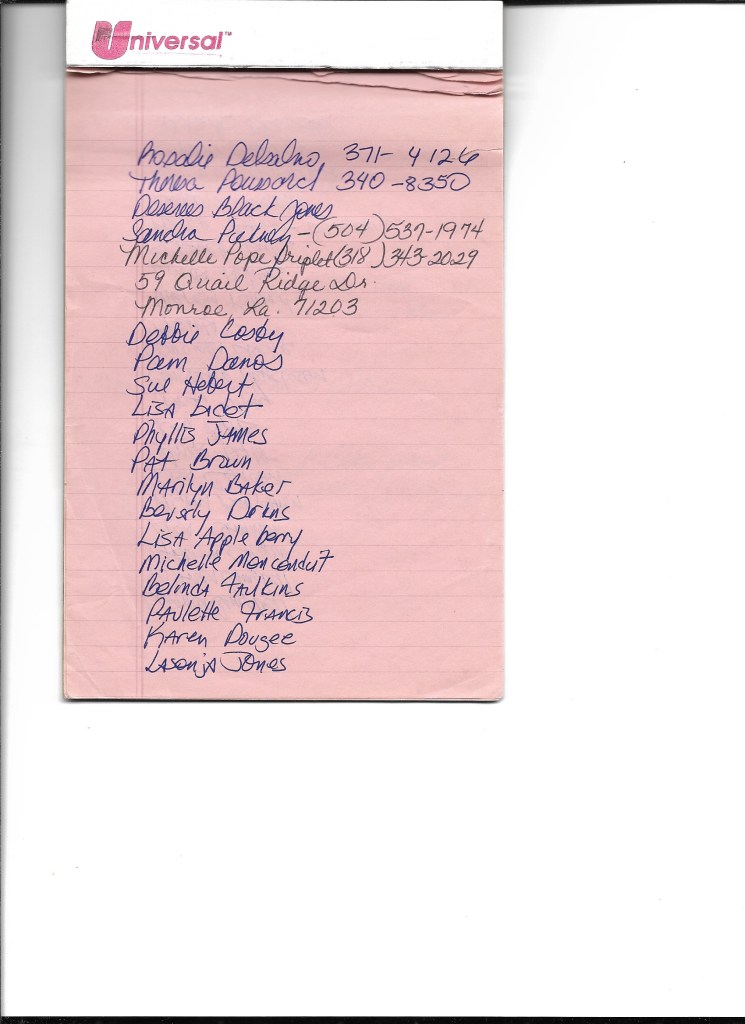 Universal™
Rosalie Delsalno, 371-4126
Theresa 340-8350
Desenes Black Jones
Sandra - (504) 537-1974
Michelle Pope Driplet (318) 343-2029
59 Quail Ridge Dr.
Monroe, La. 71203
Debbie Cosby
Pam Danos
Sue Hebert
LISA Licot
Phyllis James
PAT Brown
Marilyn Baker
Beverly
LISA Appleberry
Michelle Monconduit
Belinda Faulkins
PAulette Francis
KAren Dougee
LASonjA Jones